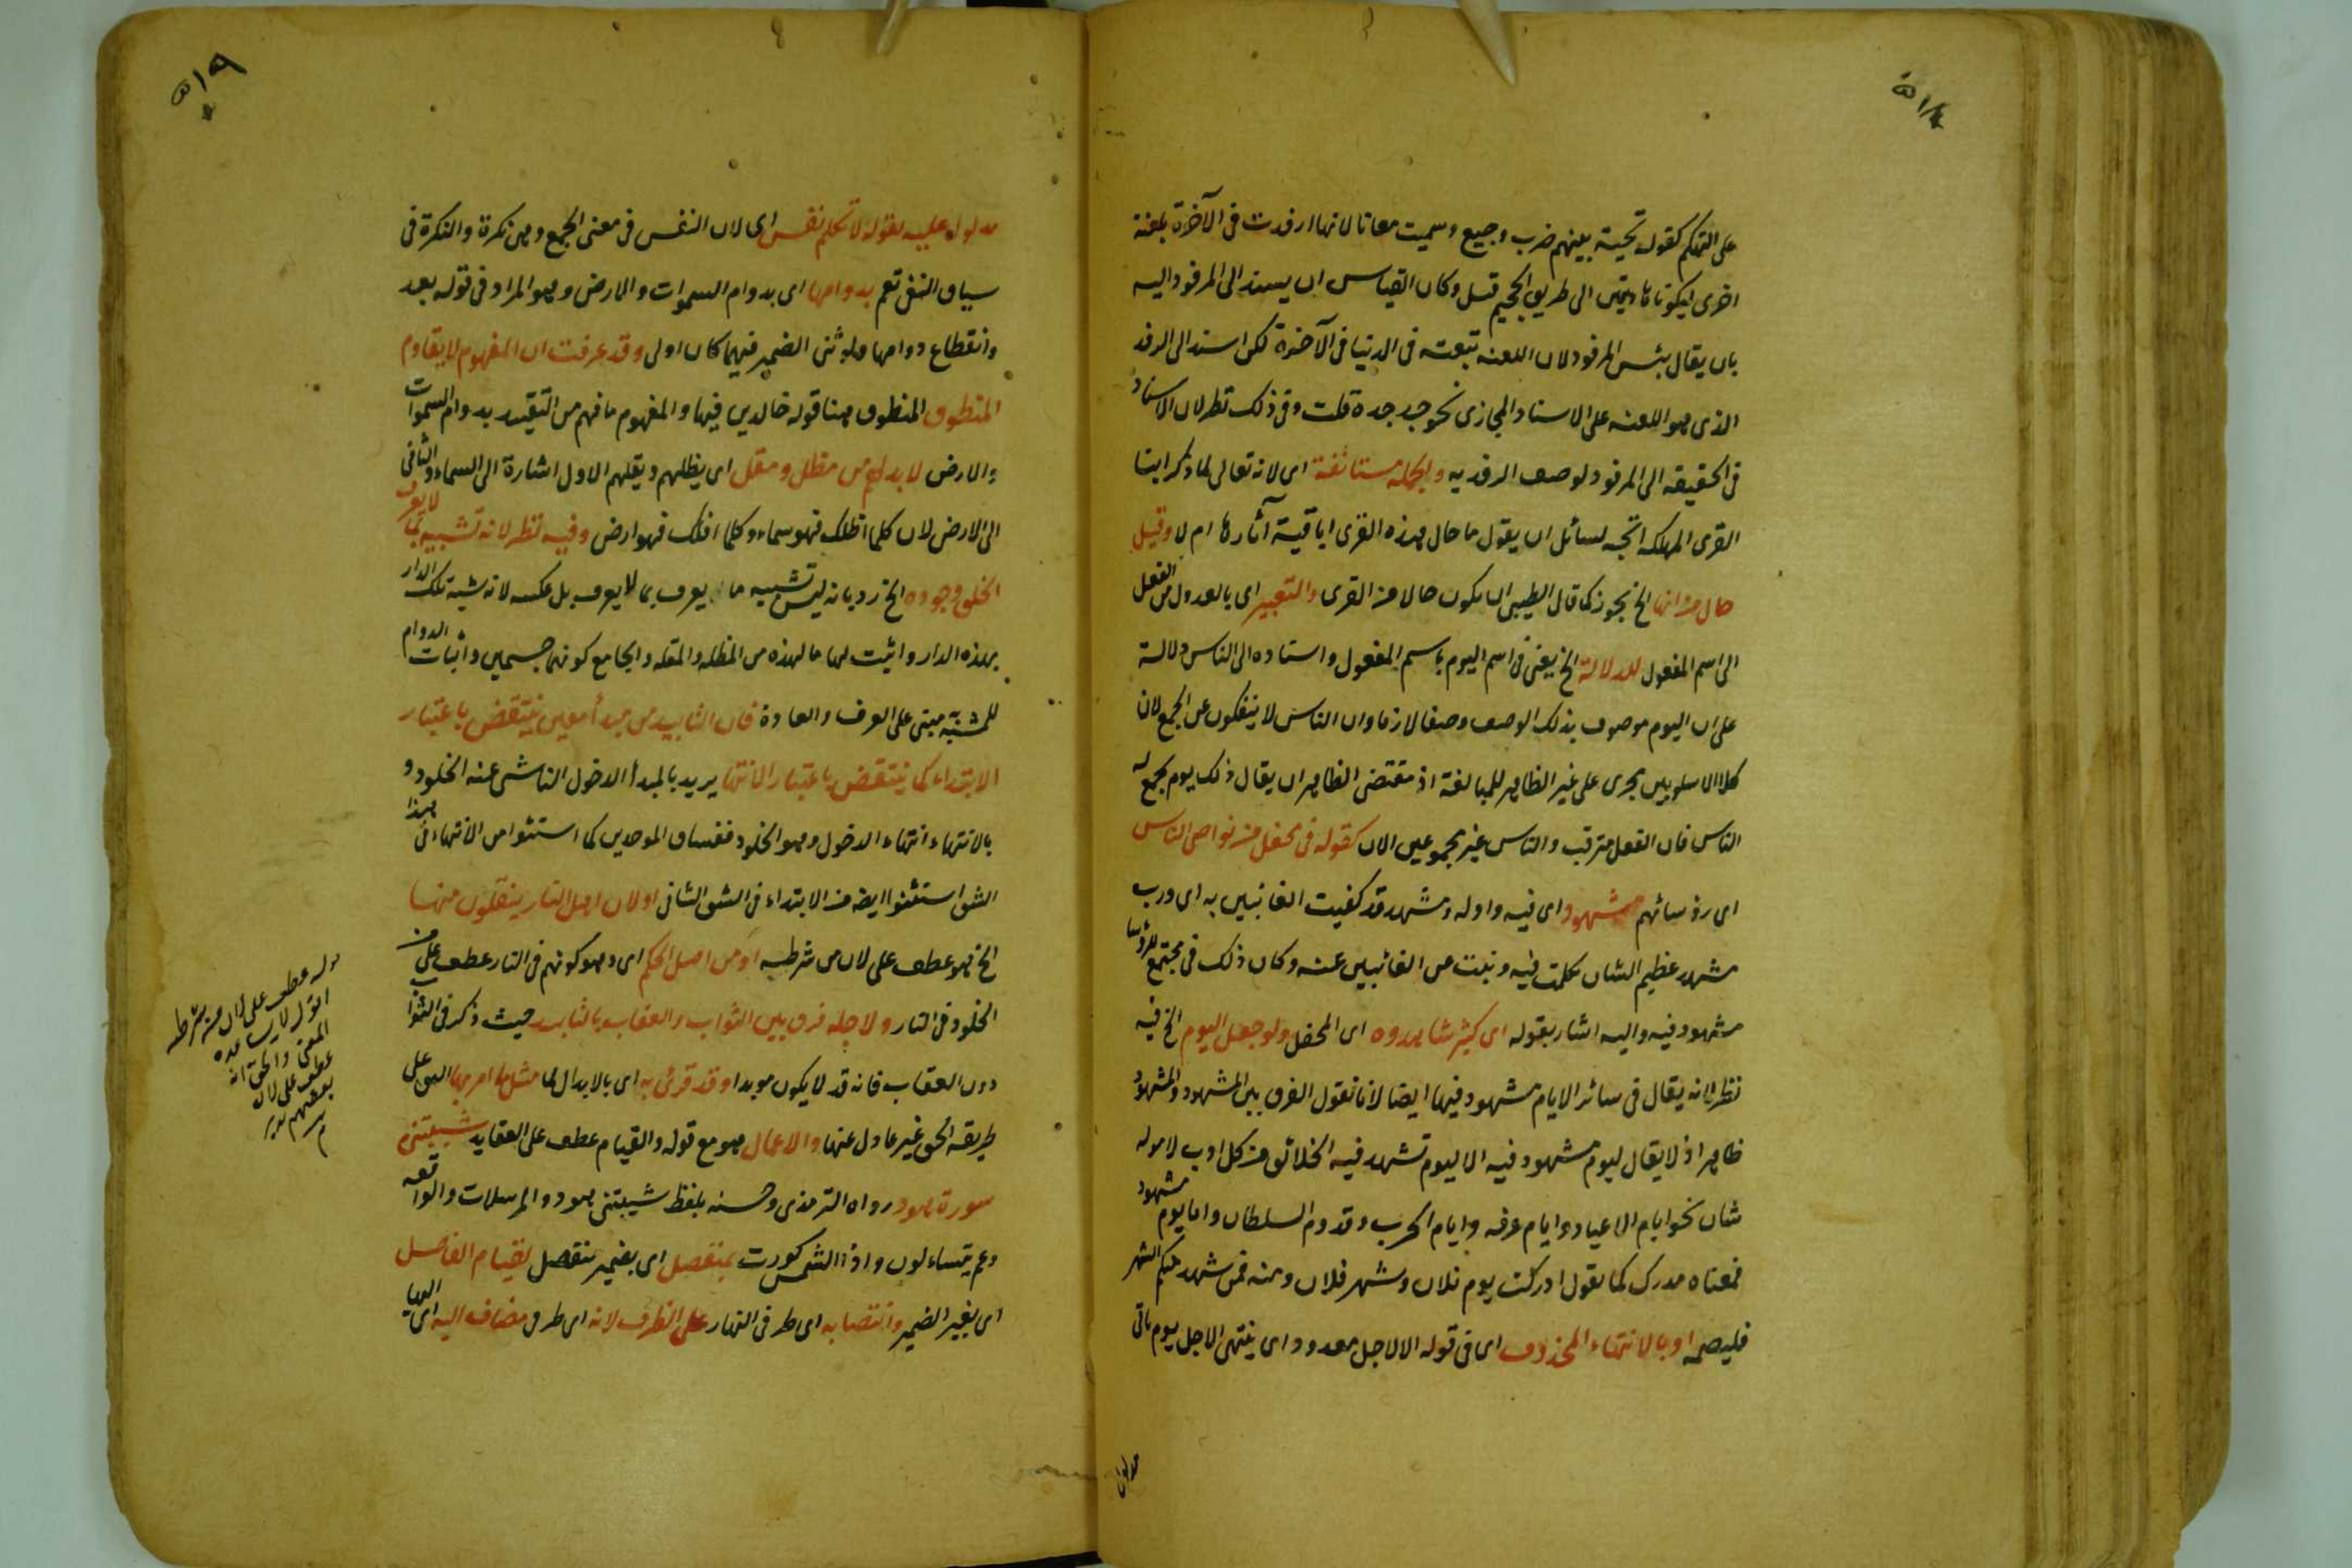 ٥١٨
على التهكم كقوله تحية بينهم ضرب وجيع وسميت معانا لانها ارفدت في الآخرة بلعنة
اخرى ليكونا هاديتين الى طريق الجحيم قيل وكان القياس ان يسند الى المرفود اليه
بان يقال بئس المرفود لان اللعنه تبعته في الدنيا في الآخرة لكن اسند الى الرفد
الذى هو اللعنه على الاسناد المجازى نحو جد جده قلت وفى ذلك نظر لان الاسناد
في الحقيقه الى المرفود لوصف الرفد به والجملة مستانفة اى لانه تعالى لما ذكر ابنا
القرى المهلكه اتجه لسائل ان يقول ما حال هذه القرى اباقية آثارها ام لا وقيل
حال من انها الخ يجوز كما قال الطيبي ان يكون حالا من القرى والتعبير اى بالعدول من الفعل
الى اسم المفعول للدلالة الخ يعنى في اسم اليوم باسم المفعول واسناده الى الناس دلالة
على ان اليوم موصوف بذلك الوصف وصفا لازما وان الناس لا ينفكون عن الجمع لان
كلا الاسلوبين يجرى على غير الظاهر للمبالغة اذ مقتضى الظاهر ان يقال ذلك يوم يجمع له
الناس فان الفعل مترقب والناس غير مجموعين الان كقوله في محفل من نواصى الناس
اى رؤسائهم مشهود اى فيه واوله ومشهد قد كفيت الغائبين به اى ورب
مشهد عظيم الشان تكلمت فيه ونبت عن الغائبين عنه وكان ذلك في مجتمع للرؤسا
مشهود فيه واليه اشار بقوله اى كثير شاهدوه اى المحفل ولو جعل اليوم الخ فيه
نظر لانه يقال في سائر الايام مشهود فيها ايضا لانا نقول الفرق بين المشهود والمشهود
ظاهر اذ لا يقال ليوم مشهود فيه الا ليوم تشهد فيه الخلائق من كل اوب لامر له
شان نحو ايام الاعياد وايام عرفه وايام الحرب وقدوم السلطان واما يوم مشهود
فمعناه مدرك كما يقول ادركت يوم فلان وشهر فلان ومنه فمن شهد منكم الشهر
فليصمه او بالانتهاء المحذوف اى في قوله الا لاجل معدود اى ينتهى الاجل يوم ياتى
٥١٩
مدلول عليه بقوله لا تكلم نفس اى لان النفس في معنى الجمع وهى نكرة والنكرة في
سياق النفى تعم بدوامها اى بدوام السموات والارض وهو المراد في قوله بعد
وانقطاع دوامها ولو ثنى الضمير فيهما كان اولى وقد عرفت ان المفهوم لا يقاوم
المنطوق المنطوق هنا قوله خالدين فيها والمفهوم ما فهم من التقييد بدوام السموات
والارض لا بد لهم من مظل ومقل اى يظلهم ويقلهم الاول اشارة الى السماء والثانى
الى الارض لان كلما اظلك فهو سماء وكلما اقلك فهو ارض وفيه نظر لانه تشبيه بما لا يعرف
الخلق وجوده الخ رد بانه ليس تشبيه ما يعرف بما لا يعرف بل عكسه لانه شبه تلك الدار
بهذه الدار واثبت لها ما لهذه من المظله والمقله والجامع كونهما جسمين واثبات الدوام
للمشبه مبنى على العرف والعادة فان التابيد من مبدأ معين ينتقض باعتبار
الابتداء كما ينتقض باعتبار الانتها يريد بالمبدأ الدخول الناشى عنه الخلود و
بالانتهاء انتهاء الدخول وهو الخلود ففساق الموحدين كما استثنوا من الانتهاء في هذا
الشق استثنوا ايضا من الابتداء في الشق الثانى او لان اهل النار ينقلون منها
الخ فهو عطف على لان من شرطه او من اصل الحكم اى وهو كونهم في النار عطف على من
الخلود في النار ولاجله فرق بين الثواب والعقاب بالتابيد حيث ذكر في الثوا
دون العقاب فانه قد لا يكون موبدا وقد قرئ به اى بالابدال لها مثل ما امر بها اى على
طريقه الحق غير عادل عنها والاعمال هو مع قوله والقيام عطف على العقايد شيبتنى
سورة هود رواه الترمذى وحسنه بلفظ شيبتنى هود والمرسلات والواقعه
وعم يتساءلون واذا الشمس كورت بمنفصل اى بضمير منفصل لقيام الفاصل
اى بغير الضمير وانتصابه اى طرفى النهار على الظرف لانه اى طرفى مضاف اليه اى
قوله عطف على لان من شرطه